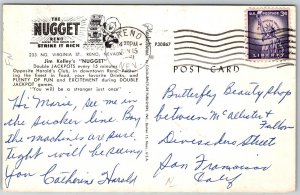 The
NUGGET
RENO
STRIKE IT RICH
233 NO. VIRGINIA ST. RENO, NEVADA
Jim Kelley's "NUGGET"
Double JACKPOTS every 15 minutes
ing the finest in Food, your favorite Drinks, and
PLENTY OF FUN and EXCITEMENT during DOUBLE
JACKPOT games.
"You will be a stranger just once"
RENO
NEV
P30867
POST CARD
3¢
Hi Marie, see me in
the sucker line. Boy
the machines are pure,
tight will be seeing
you Catherine Harold
Butterfley Beauty Shop
between McCallister &
Fulton
Divisadero Street
San Francisco
Calif